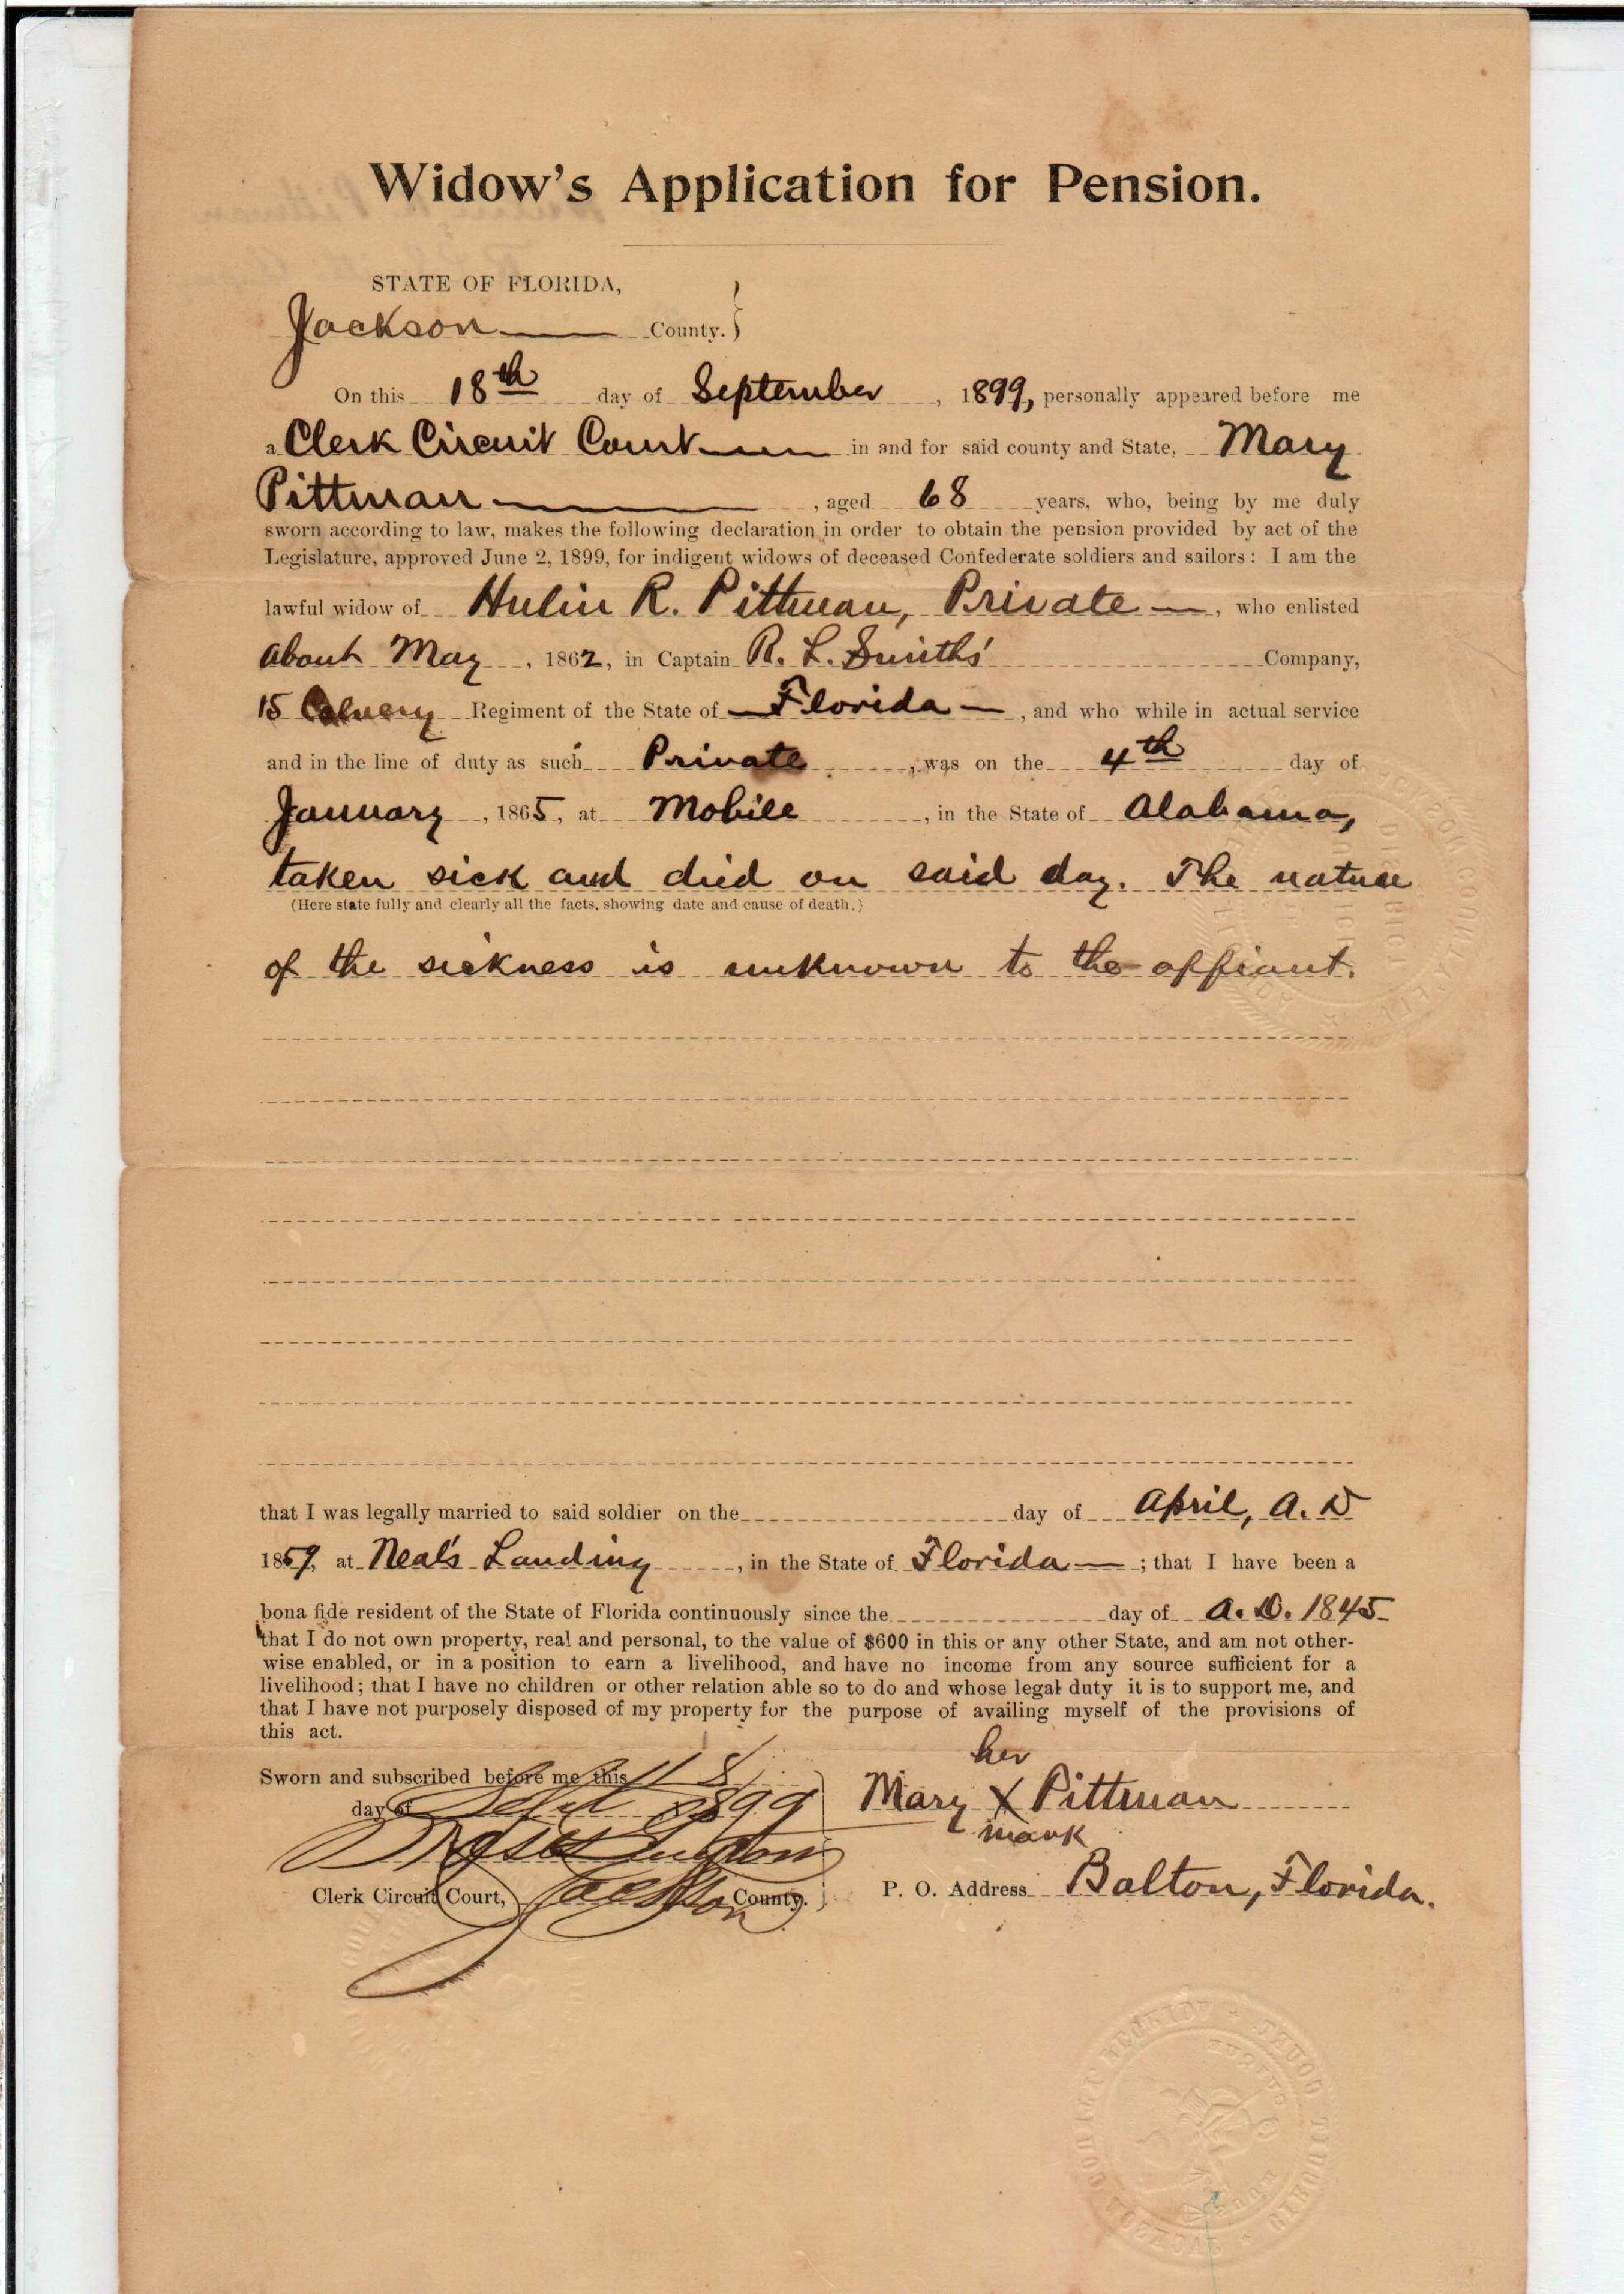 Widow's Application for Pension.
STATE OF FLORIDA,
Jackson County. }
On this 18th day of September, 1899, personally appeared before me
a Clerk Circuit Court in and for said county and State, Mary
Pittman, aged 68 years, who, being by me duly
sworn according to law, makes the following declaration in order to obtain the pension provided by act of the
Legislature, approved June 2, 1899, for indigent widows of deceased Confederate soldiers and sailors: I am the
lawful widow of Hulin R. Pittman, Private, who enlisted
about May, 1862, in Captain R. L. Smiths' Company,
15 Calvery Regiment of the State of Florida, and who while in actual service
and in the line of duty as such Private, was on the 4th day of
January, 1865, at Mobile, in the State of Alabama,
taken sick and died on said day. The nature
(Here state fully and clearly all the facts, showing date and cause of death.)
of the sickness is unknown to the affiant.
that I was legally married to said soldier on the day of April, A. D
1859, at Neal's Landing, in the State of Florida; that I have been a
bona fide resident of the State of Florida continuously since the day of A. D. 1845
that I do not own property, real and personal, to the value of $600 in this or any other State, and am not other-
wise enabled, or in a position to earn a livelihood, and have no income from any source sufficient for a
livelihood; that I have no children or other relation able so to do and whose legal duty it is to support me, and
that I have not purposely disposed of my property for the purpose of availing myself of the provisions of
this act.
Sworn and subscribed before me this 18
day of Sept 1899
Clerk Circuit Court, Jackson County. }
her
Mary X Pittman
mark
P. O. Address Balton, Florida.